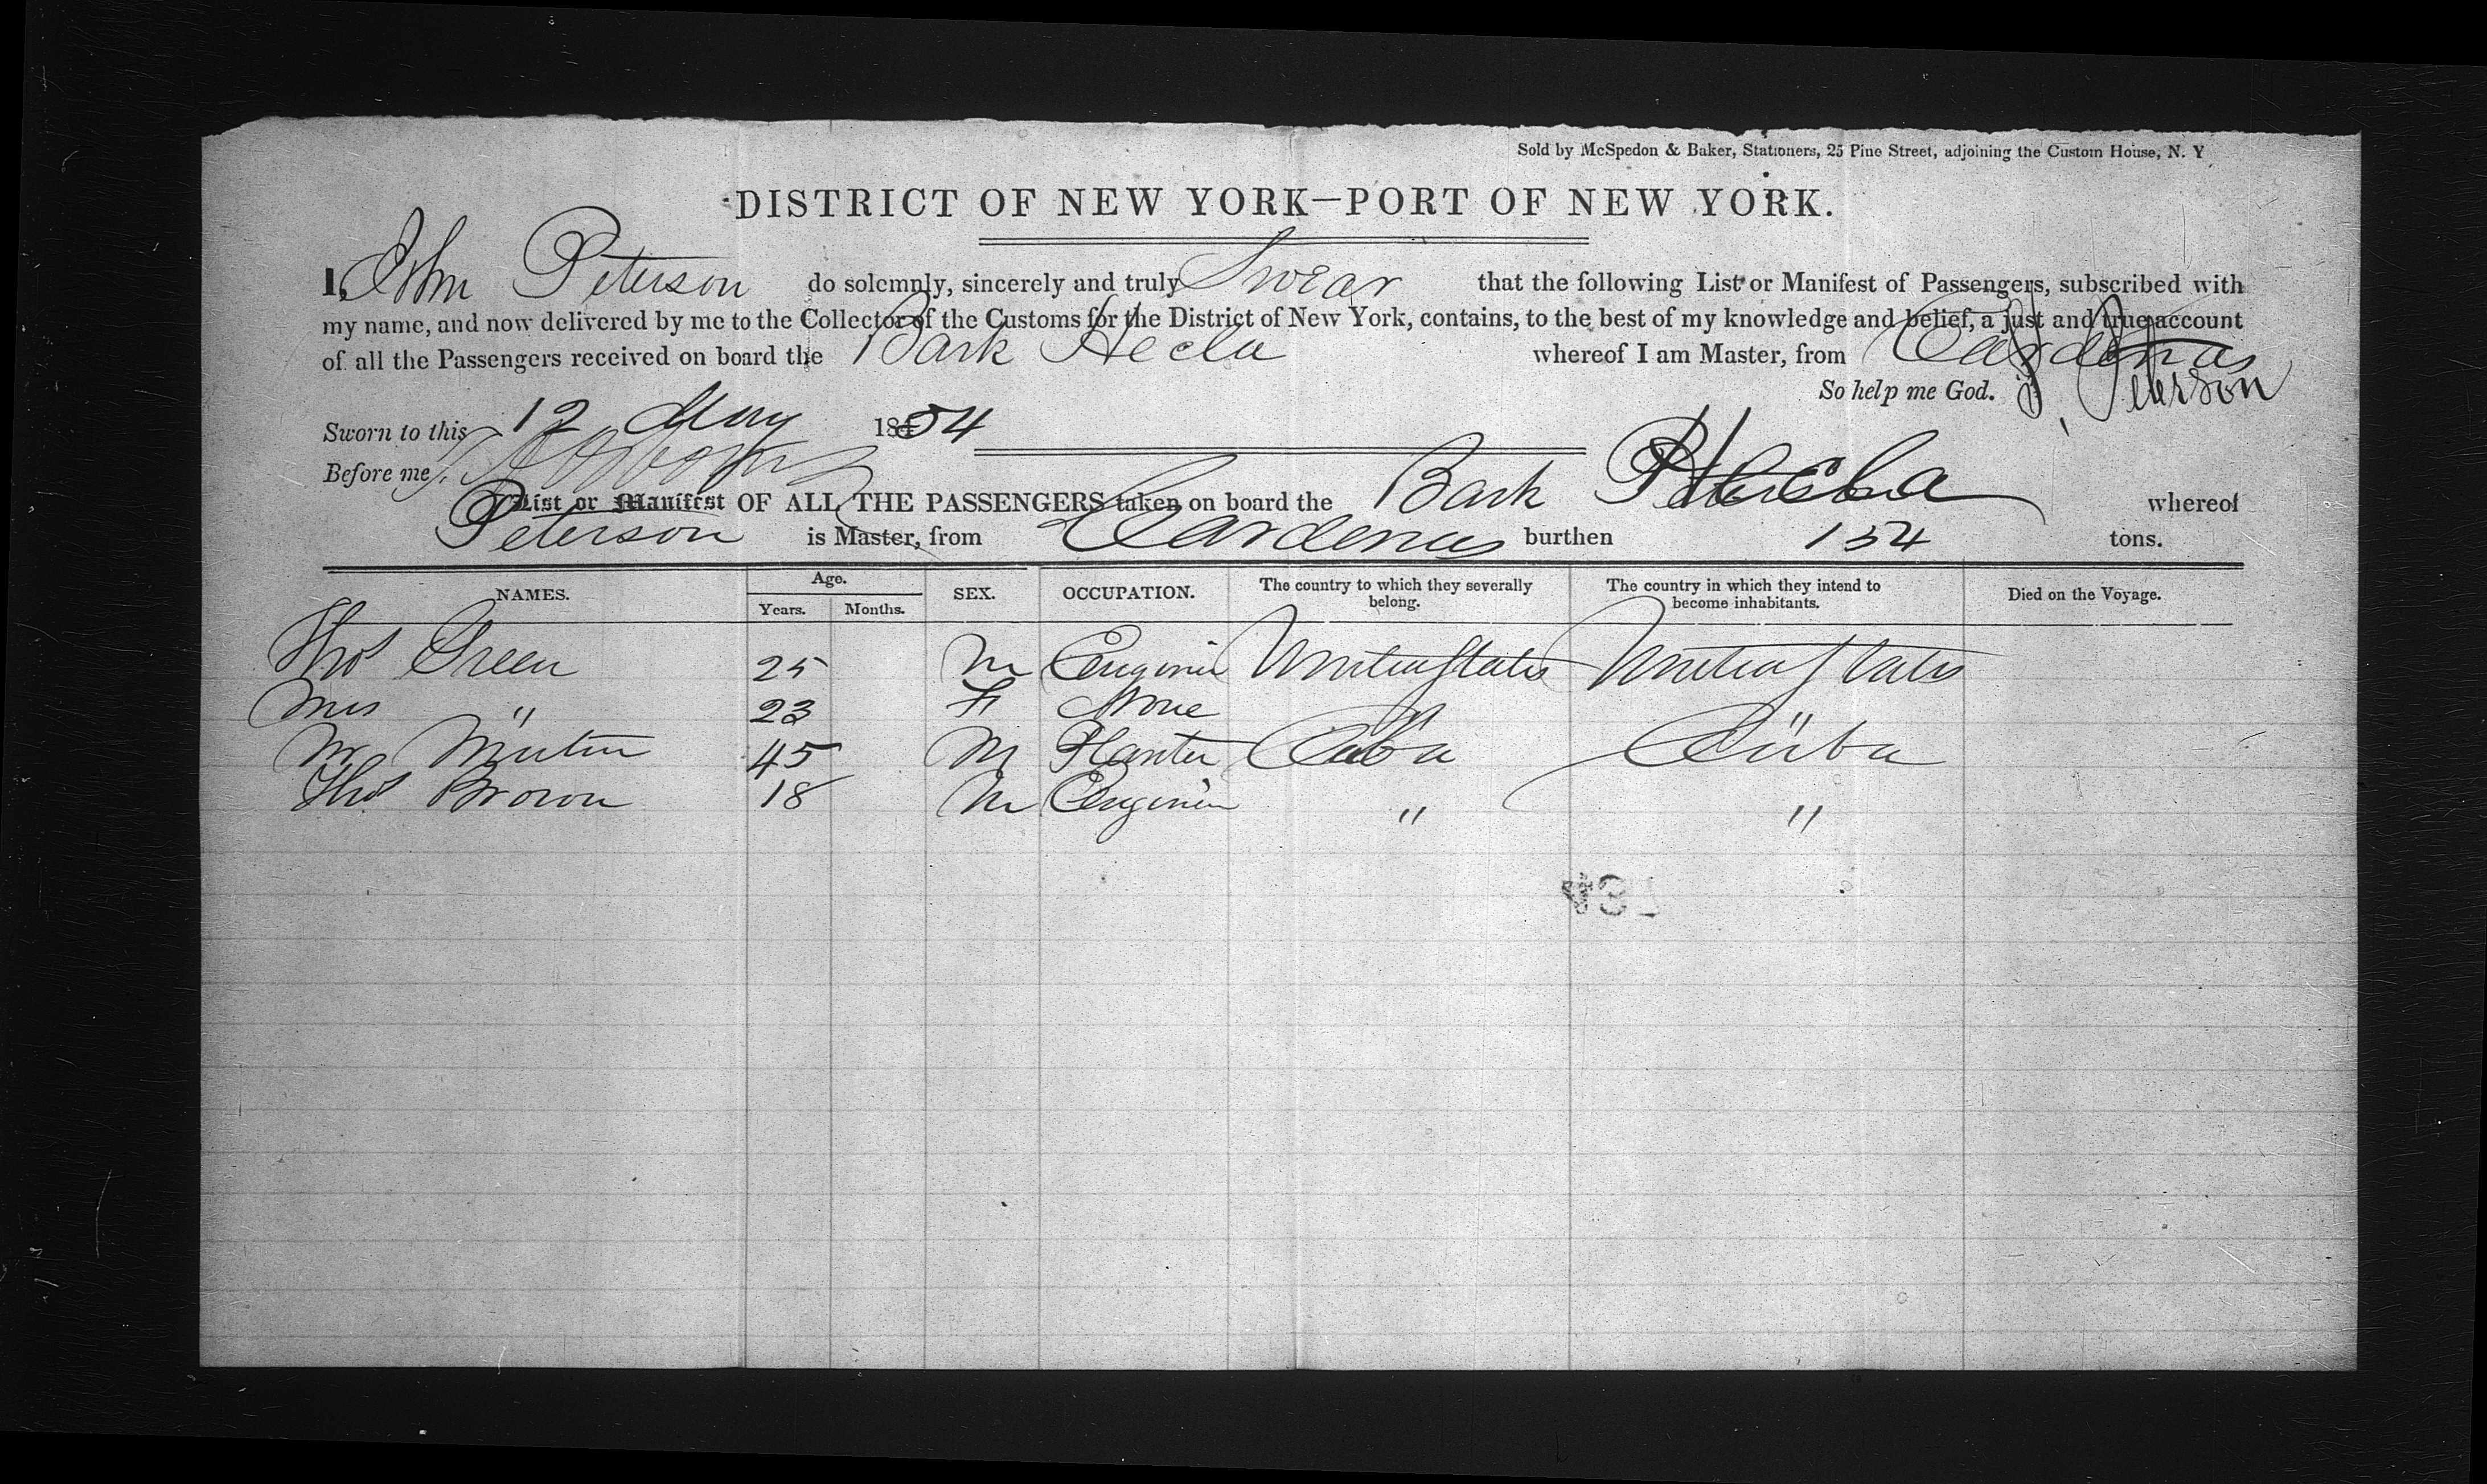 Sold by McSpedon & Baker, Stationers, 25 Pine Street, adjoining the Custom House, N. Y
DISTRICT OF NEW YORK—PORT OF NEW YORK.
I, John Peterson do solemnly, sincerely and truly Swear that the following List or Manifest of Passengers, subscribed with
my name, and now delivered by me to the Collector of the Customs for the District of New York, contains, to the best of my knowledge and belief, a just and true account
of all the Passengers received on board the Bark Hecla whereof I am Master, from Cardenas
So help me God. J. Peterson
Sworn to this 12 May 1854
Before me
List or Manifest OF ALL THE PASSENGERS taken on board the Bark Hecla whereof
Peterson is Master, from Cardenas burthen 154 tons.
NAMES. Age. Years. Months. SEX. OCCUPATION. The country to which they severally belong. The country in which they intend to become inhabitants. Died on the Voyage.
Thos Green 25 M Enginir United States United States
Mrs " 23 F None " "
Mr 45 M Planter Cuba Cuba
Thos Brown 18 M Enginir " "